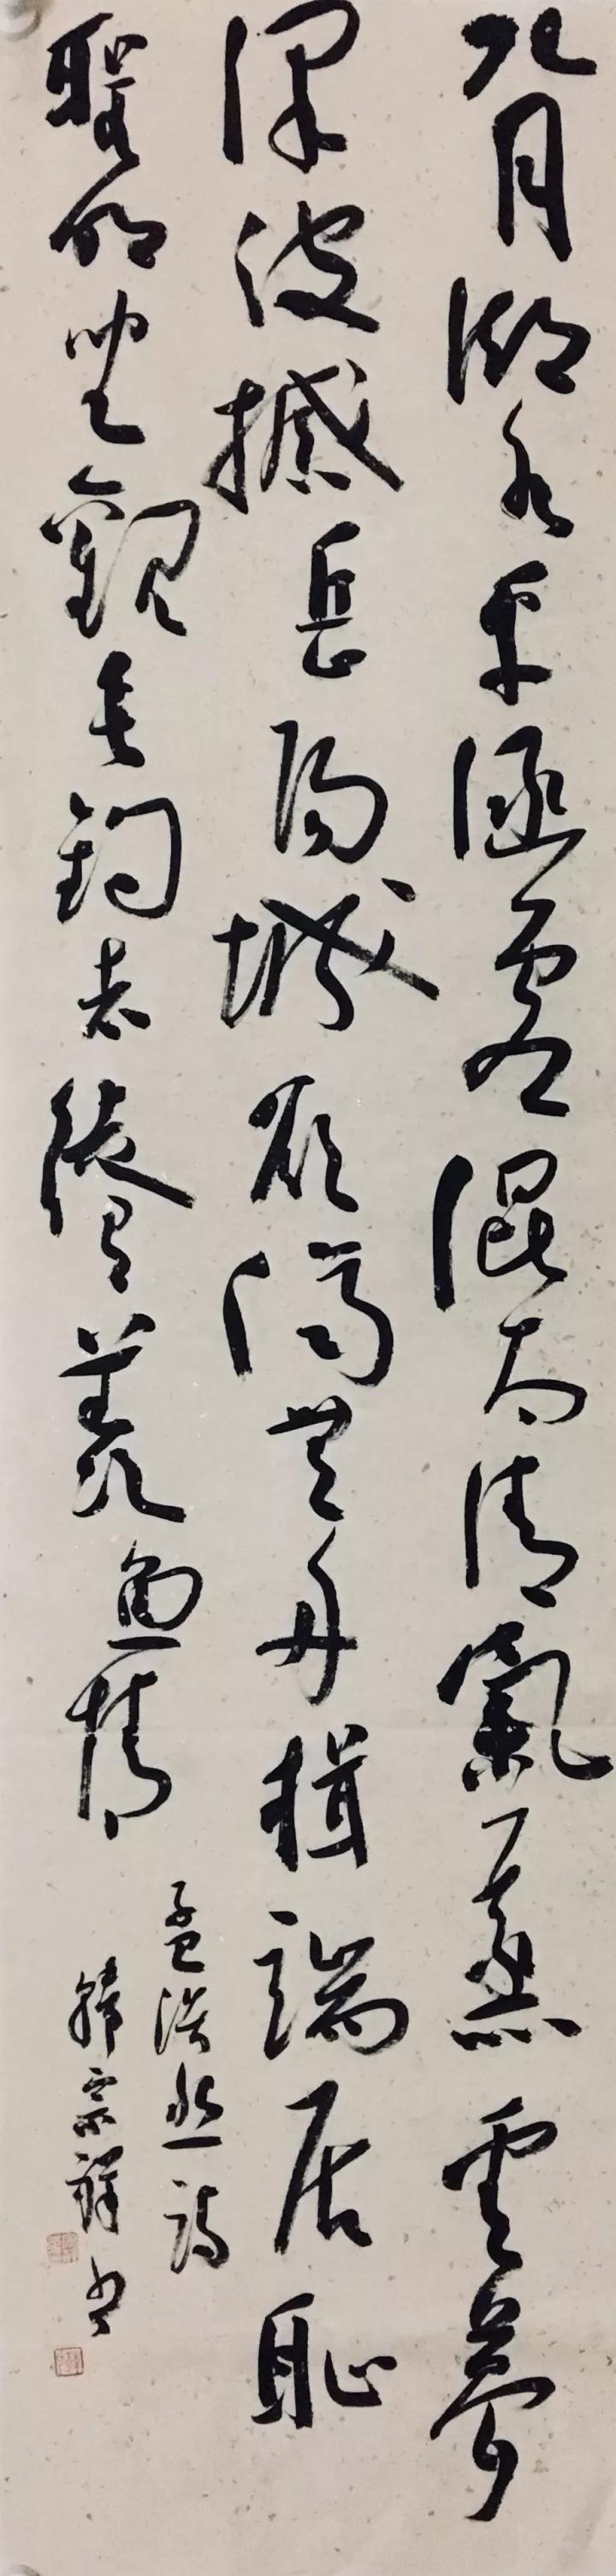 八月湖水平涵虚混太清氣蒸雲夢
澤波撼岳陽城欲濟無舟楫端居恥
聖明坐觀垂釣者徒有羡魚情
孟浩然詩
韓宗祥书